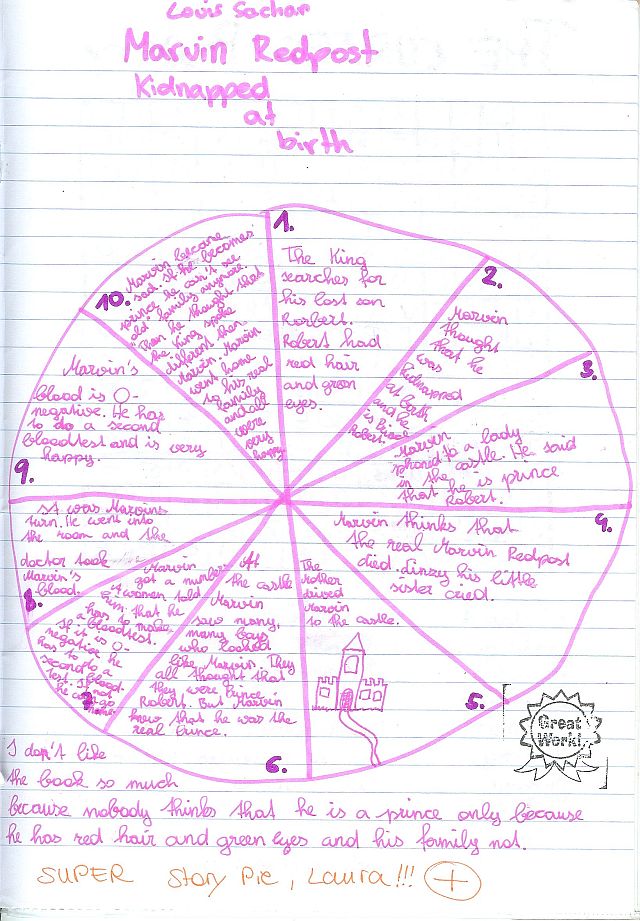 Louis Sachar
Marvin Redpost
Kidnapped
at
birth
1.
The King
searches for
his lost son
Rorbert.
Robert had
red hair
and green
eyes.
2.
Marvin
thought
that he
was
kidnapped
at birth
and he
is Prince
Robert.
3.
Marvin
phoned to a lady
in the castle. He said
that he is prince
Robert.
4.
Marvin thinks that
the real Marvin Redpost
died. Linzy his little
sister cried.
5.
The
mother
drived
Marvin
to the castle.
6.
At
the castle
Marvin
saw many,
many boys
who looked
like Marvin. They
all thought that
they were Prince
Robert. But Marvin
knew that he was the
real prince.
7.
Marvin
got a number.
A women told
him that he
has to make
a bloodtest.
If it is O-
negative he
has to do a
second blood-
test. If not
he can go
home.
8.
It was Marvins
turn. He went into
the room and the
doctor took
Marvin's
blood.
9.
Marvin's
blood is O-
negative. He has
to do a second
bloodtest and is very
happy.
10.
Marvin became
sad. If he becomes
prince he can't see
old family anymore.
Then he thought that
the King spoke
different then
Marvin. Marvin
went home
to his real
family
and all
were
very
happy
I don't like
the book so much
because nobody thinks that he is a prince only because
he has red hair and green eyes and his family not.
Great
Work!
SUPER Story Pie, Laura!!! +